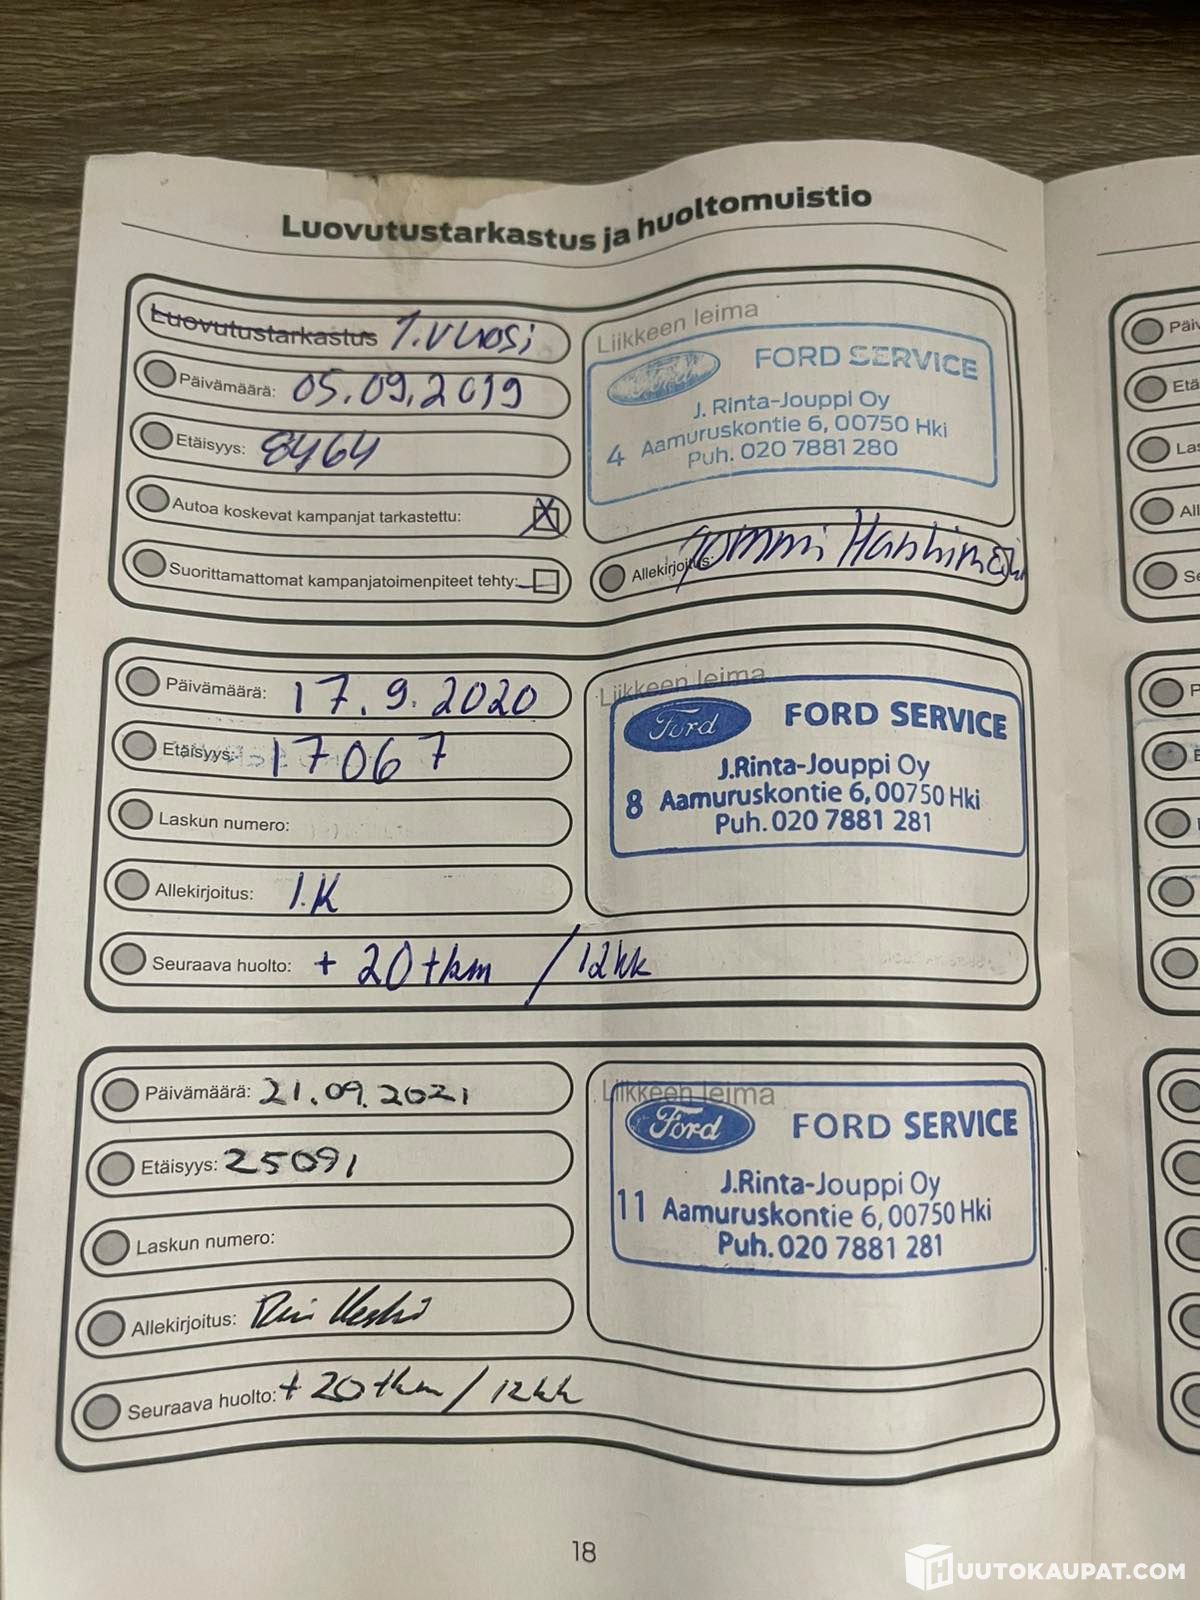 Luovutustarkastus ja huoltomuistio
Luovutustarkastus 1. vuosi
Päivämäärä: 05.09.2019
Etäisyys: 8464
Autoa koskevat kampanjat tarkastettu: X
Suorittamattomat kampanjatoimenpiteet tehty:
Liikkeen leima
FORD SERVICE
J. Rinta-Jouppi Oy
4 Aamuruskontie 6, 00750 Hki
Puh. 020 7881 280
Allekirjoitus: Tommi
Päivämäärä: 17.9.2020
Etäisyys: 17067
Laskun numero:
Allekirjoitus: I.K
Seuraava huolto: + 20 tkm / 12kk
Liikkeen leima
Ford FORD SERVICE
J.Rinta-Jouppi Oy
8 Aamuruskontie 6, 00750 Hki
Puh. 020 7881 281
Päivämäärä: 21.09.2021
Etäisyys: 25091
Laskun numero:
Allekirjoitus:
Seuraava huolto: + 20 tkm / 12kk
Liikkeen leima
Ford FORD SERVICE
J.Rinta-Jouppi Oy
11 Aamuruskontie 6, 00750 Hki
Puh. 020 7881 281
18
Päiv
Etä
Las
All
Se
P
E
HUUTOKAUPAT.COM